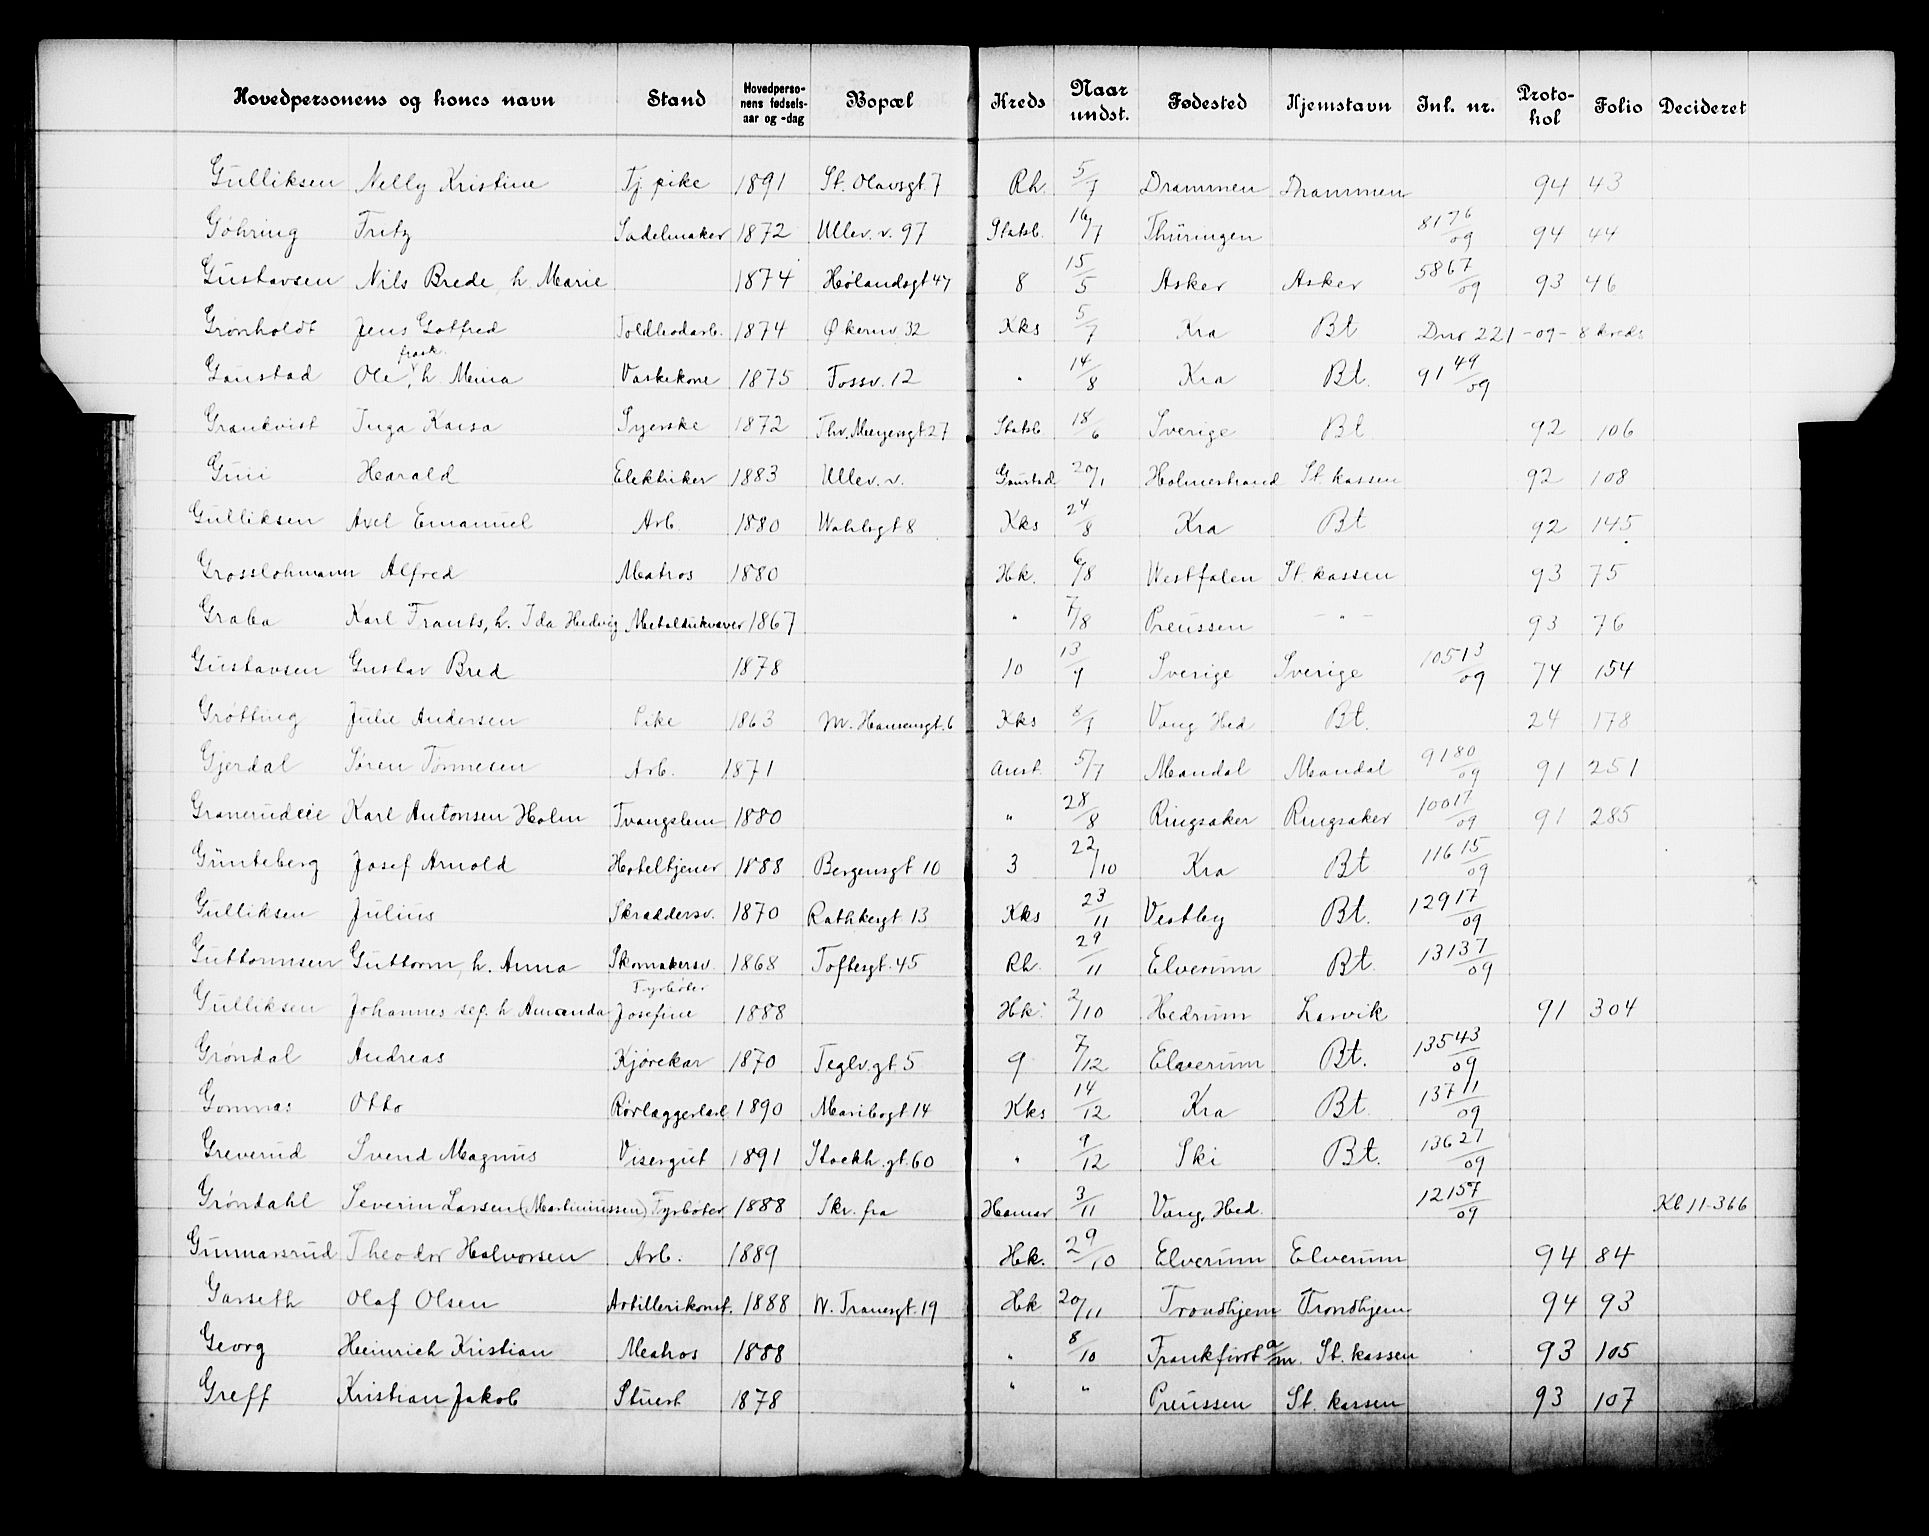 Hovedpersonens og kones navn Stand Hovedpersonens fødselsaar og -dag Bopæl Kreds Naar undst. Fødested Hjemstavn Inl. nr. Protokol Folio Decideret
Gulliksen Nelly Kristine Tj pike 1891 St. Olavsgt 7 Rh. 5/7 Drammen Drammen 94 43
Gøhring Fritz Sadelmaker 1872 Ullev. v. 97 Statsb. 16/7 Thüringen 8176/09 94 44
Gustavsen Nils Brede, h. Marie 1874 Hølandsgt 47 8 15/5 Asker Asker 5867/09 93 46
Grønholdt Jens Gotfred Toldbodarb. 1874 Økernv. 32 Kks 5/7 Kra Bt Dnr 221-09-8 kreds
frask.
Gaustad Ole, h. Mina Vaskekone 1875 Fossv. 12 " 14/8 Kra Bt. 9149/09
Grankvist Inga Kaisa Syerske 1872 Thv. Meyersgt 27 Statsb 18/6 Sverige Bt 92 106
Guii Harald Elektriker 1883 Ullev. v. Gaustad 20/1 Holmestrand St. kassen 92 108
Gulliksen Axel Emanuel Arb. 1880 Wahlsgt 8 Kks 24/8 Kra Bt 92 145
Grosslohmann Alfred Matros 1880 Hk. 6/8 Westfalen St. kassen 93 75
Graba Karl Frants, h. Ida Hedvig 1867 " 7/8 Preussen - " - 93 76
Gustavsen Gustav Bred 1878 10 13/9 Sverige Sverige 10513/09 74 154
Grøtting Julie Andersen Pike 1863 M. Hansensgt. 6 Kks 8/9 Vang Hed Bt. 24 178
Gjerdal Søren Tønnesen Arb. 1871 Anst. 5/7 Mandal Mandal 9180/09 91 251
Granerudeie Karl Antonsen Holm Tvangslem 1880 " 28/8 Ringsaker Ringsaker 10017/09 91 285
Günteberg Josef Arnold Hoteltjener 1888 Bergensgt 10 3 22/10 Kra Bt 11615/09
Gulliksen Julius Skraddersv. 1870 Rathkesgt 13 Kks 23/11 Vestby Bt. 12917/09
Guttormsen Guttorm, h. Anna Skomakersv. 1868 Toftesgt. 45 Rh. 29/11 Elverum Bt. 13137/09
Fyrbøter
Gulliksen Johannes sep. h Amanda Josefine 1888 Hk. 2/10 Hedrum Larvik 91 304
Grøndal Andreas Kjørekar 1870 Teglv.gt 5 9 7/12 Elverum Bt. 13543/09
Gommas Otto Rørlæggerlærl 1890 Maribogt. 14 Kks 14/12 Kra Bt. 13711/09
Greverud Svend Magnus Visergut 1891 Stockh. gt. 60 " 9/12 Ski Bt. 13627/09
Grøndahl Severin Larsen (Martiniussen) Fyrbøter 1888 Skr. fra Hamar 3/11 Vang, Hed. 12157/09 Kb 11-366
Gunnarsrud Theodor Halvorsen Arb. 1889 Hk. 29/10 Elverum Elverum 94 84
Garseth Olaf Olsen Artillerikonst. 1888 N. Tranesgt. 19 Hk 20/11 Trondhjem Trondhjem 94 93
Georg Heinrich Kristian Matros 1888 " 8/10 Frankfurt a/m. St. kassen 93 105
Greff Kristian Jakob Stuert 1878 " " Preussen St. kassen 93 107